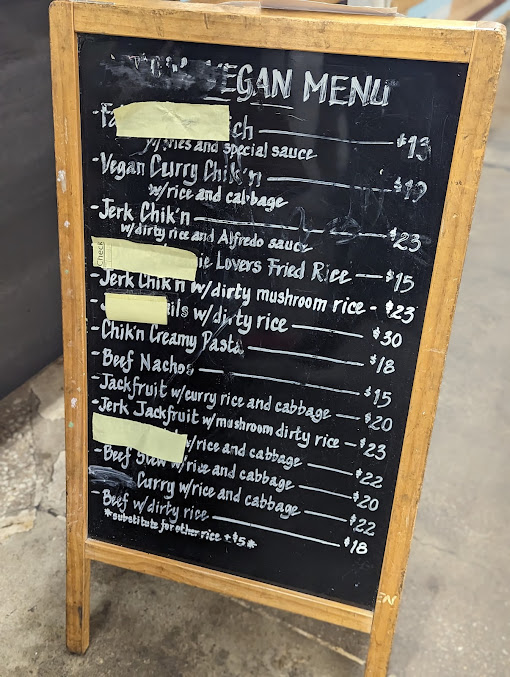 VEGAN MENU
ch — $13
w/fries and special sauce
-Vegan Curry Chik'n — $19
w/rice and cabbage
-Jerk Chik'n — $23
w/dirty rice and Alfredo sauce
Check
Lovers Fried Rice — $15
-Jerk Chik'n w/dirty mushroom rice - $23
w/dirty rice — $30
-Chik'n Creamy Pasta — $18
-Beef Nachos — $15
-Jackfruit w/curry rice and cabbage — $20
-Jerk Jackfruit w/mushroom dirty rice — $23
w/rice and cabbage — $22
-Beef Stew w/rice and cabbage — $20
Curry w/rice and cabbage — $22
-Beef w/dirty rice — $18
*substitute for other rice + $5*